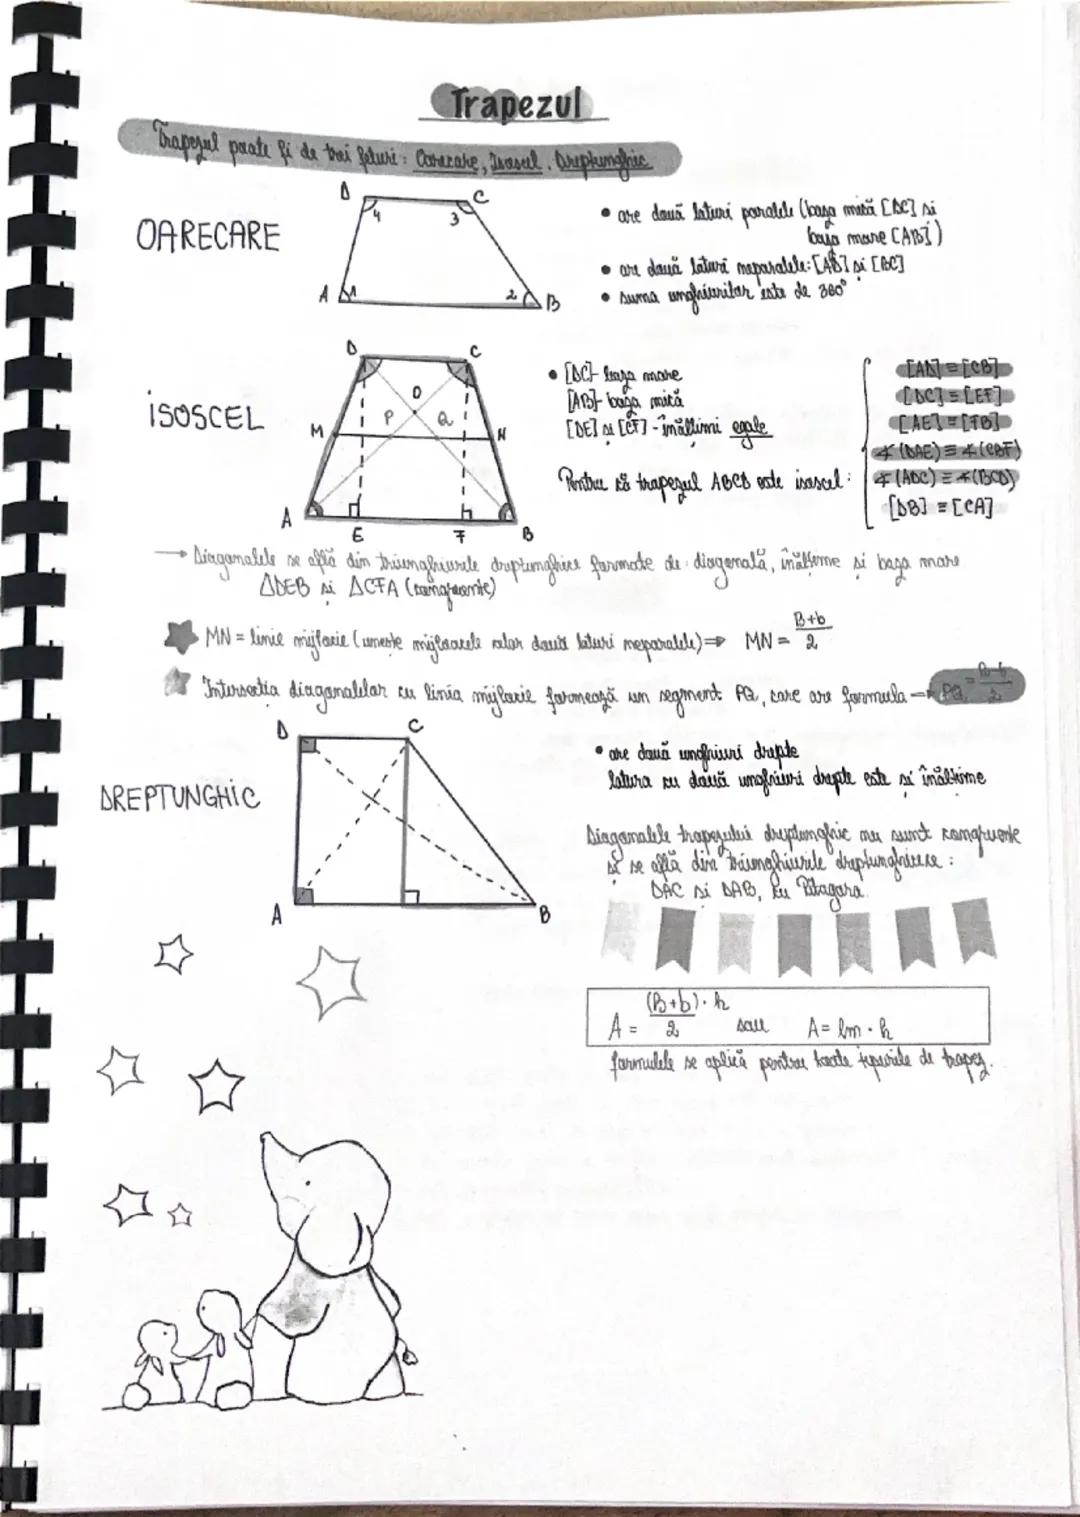 Trapezul
Trapezul poate fi de trei feluri: Oarecare, Isoscel, Dreptunghic
OARECARE
D
C
4
3
A
1
2
B
• are două laturi paralele (baza mică [DC] și
baza mare [AB])
• are două laturi neparalele: [AD] și [BC]
• suma unghiurilor este de 360°
ISOSCEL
D
C
O
P
Q
M
N
A
E
F
B
• [DC]- baza mare
[AB]- baza mică
[DE] și [CF] - înălțimi egale
Pentru că trapezul ABCD este isoscel:
[AD] ≡ [CB]
[DC] ≡ [EF]
[AE] ≡ [FB]
∢(DAE) ≡ ∢(CBF)
∢(ADC) ≡ ∢(BCD)
[DB] ≡ [CA]
→ Diagonalele se află din triunghiurile dreptunghice formate de: diagonală, înălțime și baza mare
ΔDEB și ΔCFA (congruente)
MN = linie mijlocie (unește mijloacele celor două laturi neparalele) ⇒ MN = B+b / 2
Intersecția diagonalelor cu linia mijlocie formează un segment PQ, care are formula → PQ = B-b / 2
DREPTUNGHIC
D
C
A
B
• are două unghiuri drepte
latura cu două unghiuri drepte este și înălțime
Diagonalele trapezului dreptunghic nu sunt congruente
și se află din triunghiurile dreptunghice:
DAC și DAB, cu Pitagora.
A = (B+b)·h / 2 sau A = lm · h
formulele se aplică pentru toate tipurile de trapez.